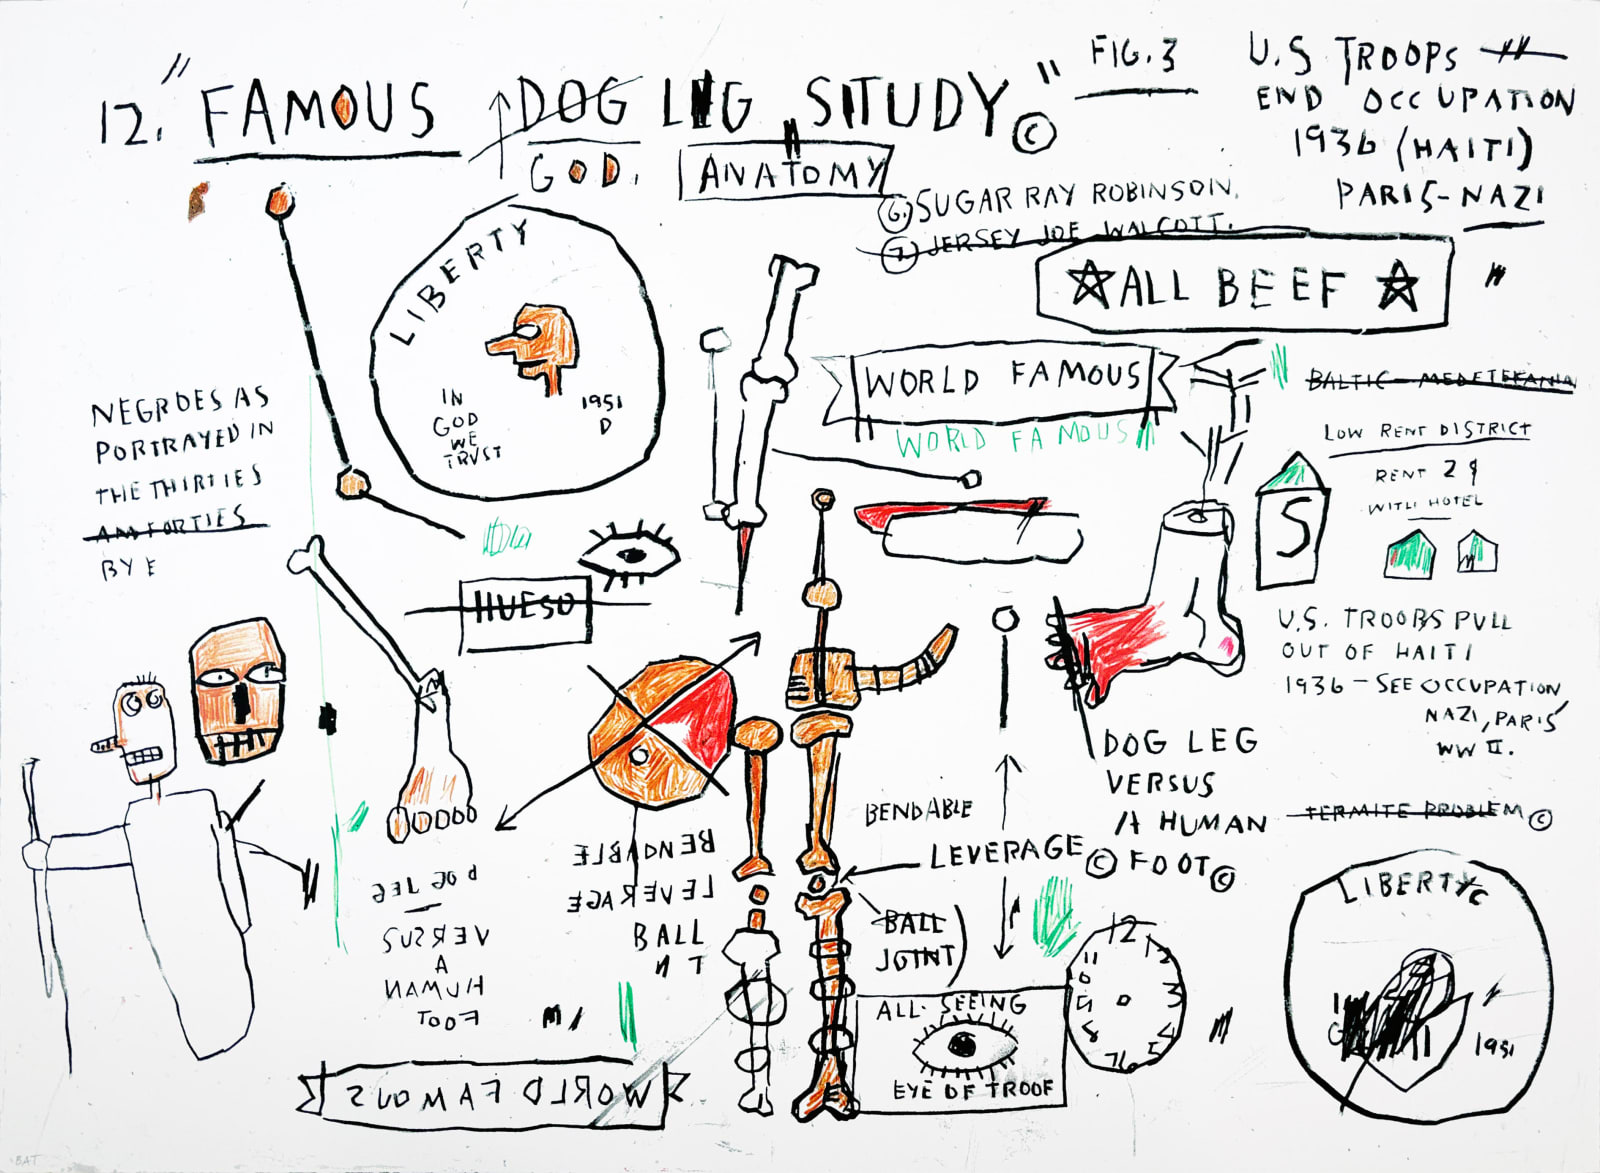 12. "FAMOUS DOG LEG STUDY" ©
GOD.
ANATOMY
FIG. 3
U.S TROOPS
END OCCUPATION
1936 (HAITI)
PARIS-NAZI
6. SUGAR RAY ROBINSON.
7. JERSEY JOE WALCOTT.
ALL BEEF
LIBERTY
IN
GOD
WE
TRUST
1951
D
WORLD FAMOUS
WORLD FAMOUS
BALTIC - MEDETERANIA
LOW RENT DISTRICT
RENT 2
WITH HOTEL
S
NEGROES AS
PORTRAYED IN
THE THIRTIES
AND FORTIES
BY E
HUESO
U.S. TROOPS PULL
OUT OF HAITI
1936 - SEE OCCUPATION
NAZI, PARIS
WW II.
TERMITE PROBLEM ©
DOG LEG
VERSUS
A HUMAN
FOOT ©
BENDABLE
LEVERAGE ©
BALL
JOINT
BENDABLE
LEVERAGE
BALL
DOG LEG
VERSUS
A
HUMAN
FOOT
WORLD FAMOUS
ALL-SEEING
EYE OF TROOF
12 1 3 5 6 7 8 9 11
LIBERTY
1951
BAT